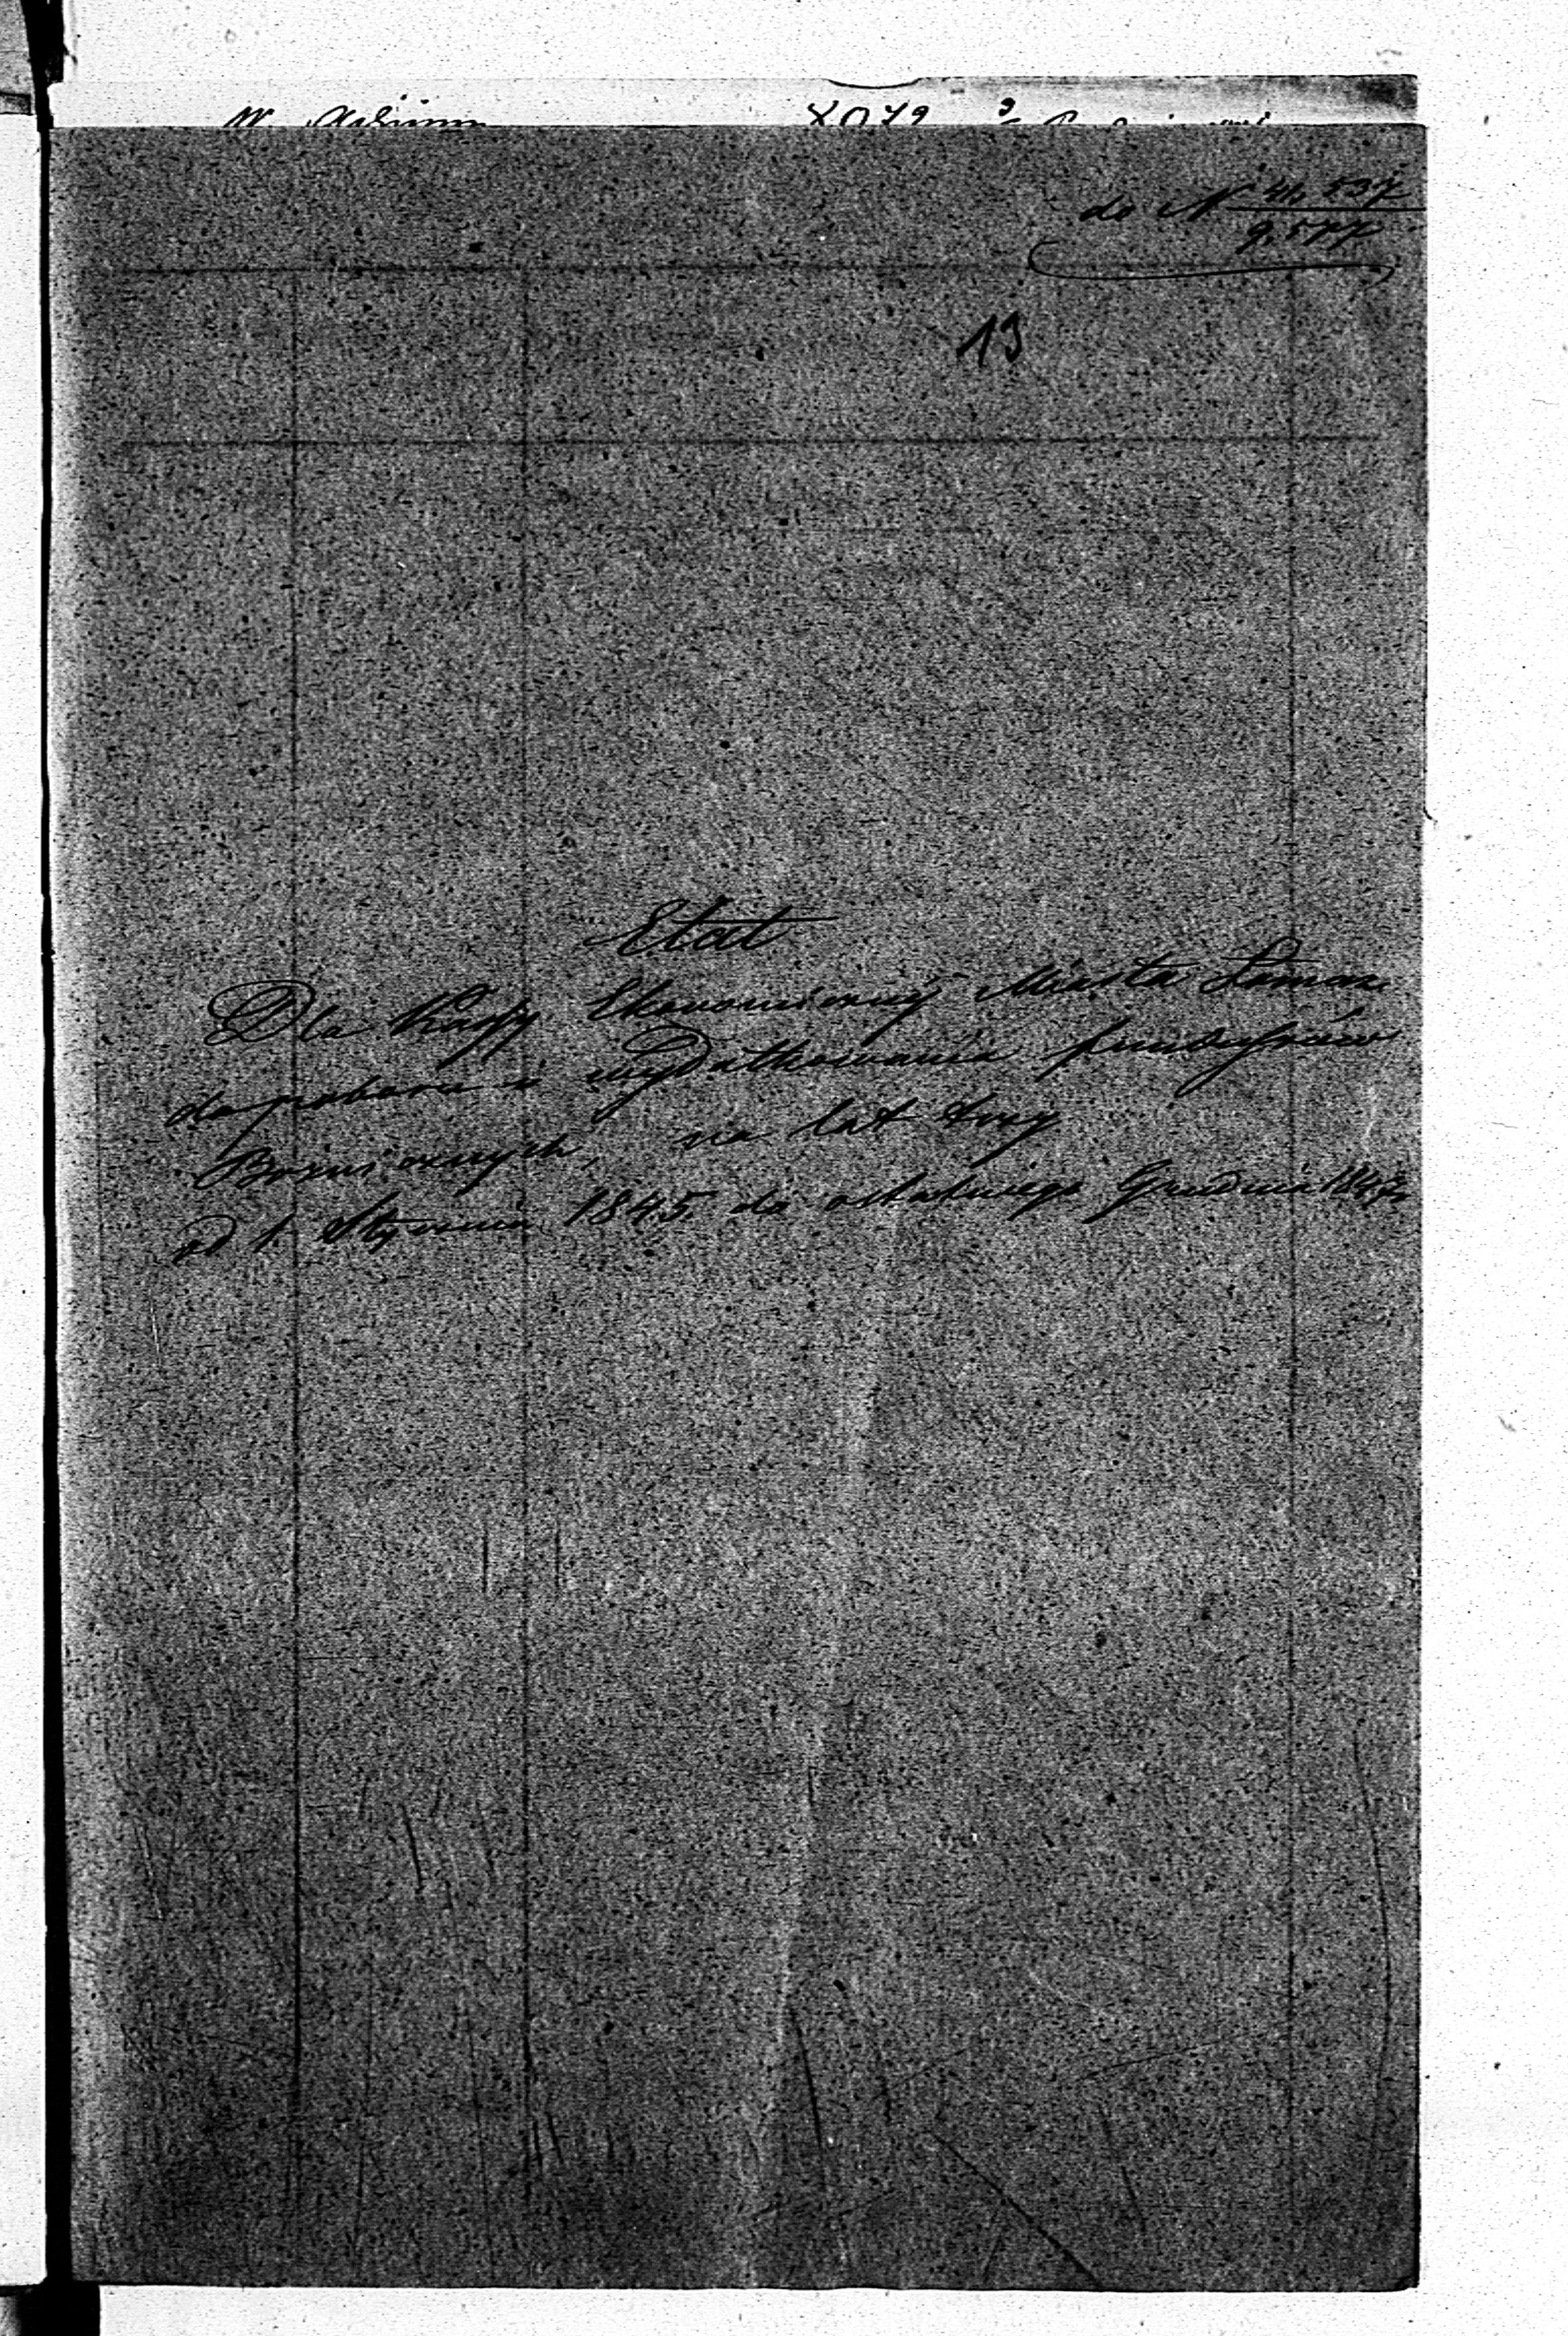 do N 41,537
9,577
13
Etat
Dla Kassy Ekonomiczney Miasta Łomży
do poboru i wydatkowania funduszów
Bożnicznych, na lat trzy
od 1 Stycznia 1845 do ostatniego Grudnia 1847 r.